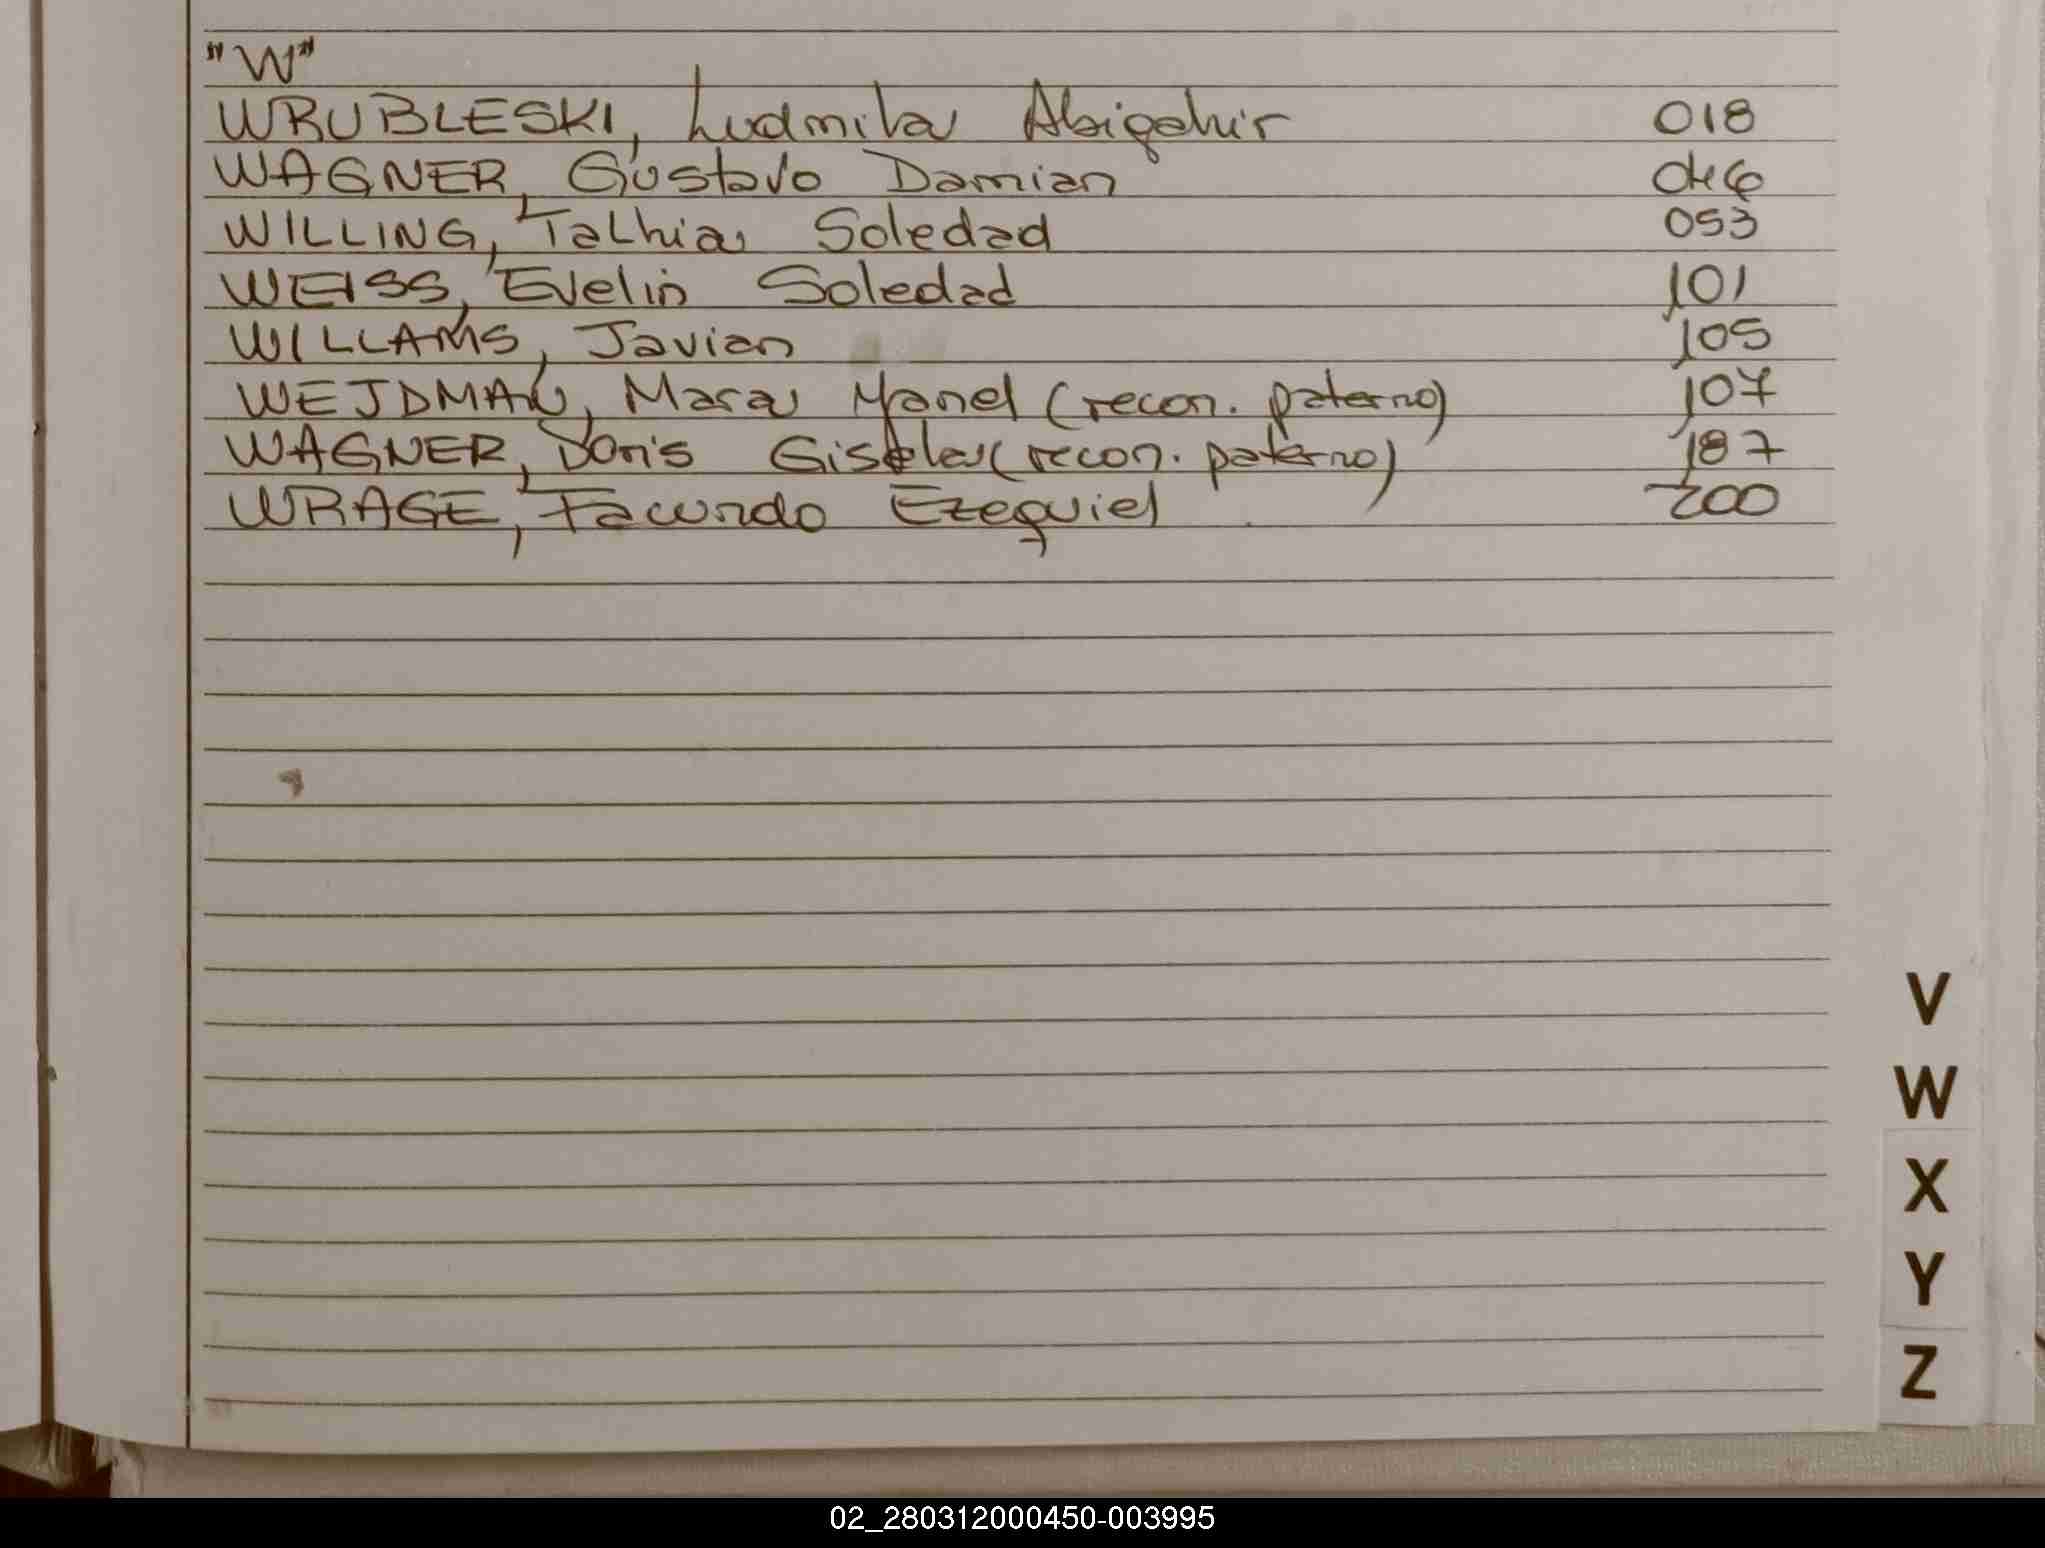 "W"
WRUBLESKI, Ludmila Abigahir 018
WAGNER, Gustavo Damian 046
WILLING, Talhia Soledad 053
WEISS, Evelin Soledad 101
WILLAMS, Javian 105
WEJDMAN, Mara Yanel (recon. paterno) 107
WAGNER, Doris Gisela (recon. paterno) 187
WRAGE, Facundo Ezequiel 200
V
W
X
Y
Z
02_280312000450-003995